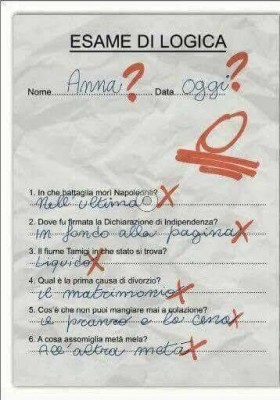 ESAME DI LOGICA
Nome Anna ? Data oggi ?
0
1. In che battaglia morì Napoleone?
Nell'ultima X
2. Dove fu firmata la Dichiarazione di Indipendenza?
In fondo alla pagina X
3. Il fiume Tamigi in che stato si trova?
Liquido X
4. Qual è la prima causa di divorzio?
il matrimonio X
5. Cos'è che non puoi mangiare mai a colazione?
il pranzo e la cena X
6. A cosa assomiglia metà mela?
All'altra metà X